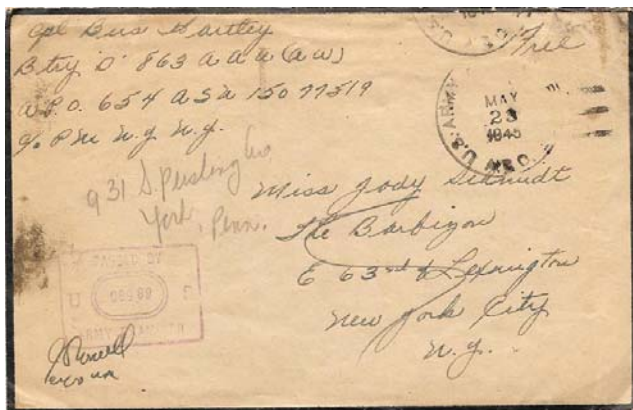 Cpl Bus Hartley
Btry "D" 863 A A A (AW)
A.P.O. 654 ASN 15077519
c/o PM N.Y. N.Y.
Free
U.S. ARMY
MAY
23
1945
U.S. ARMY A.P.O.
931 S. Pershing Ave
York, Penn.
Miss Jody Schmidt
The Barbizon
E 63rd & Lexington
New York City
N.Y.
PASSED BY
U S
ARMY EXAMINER